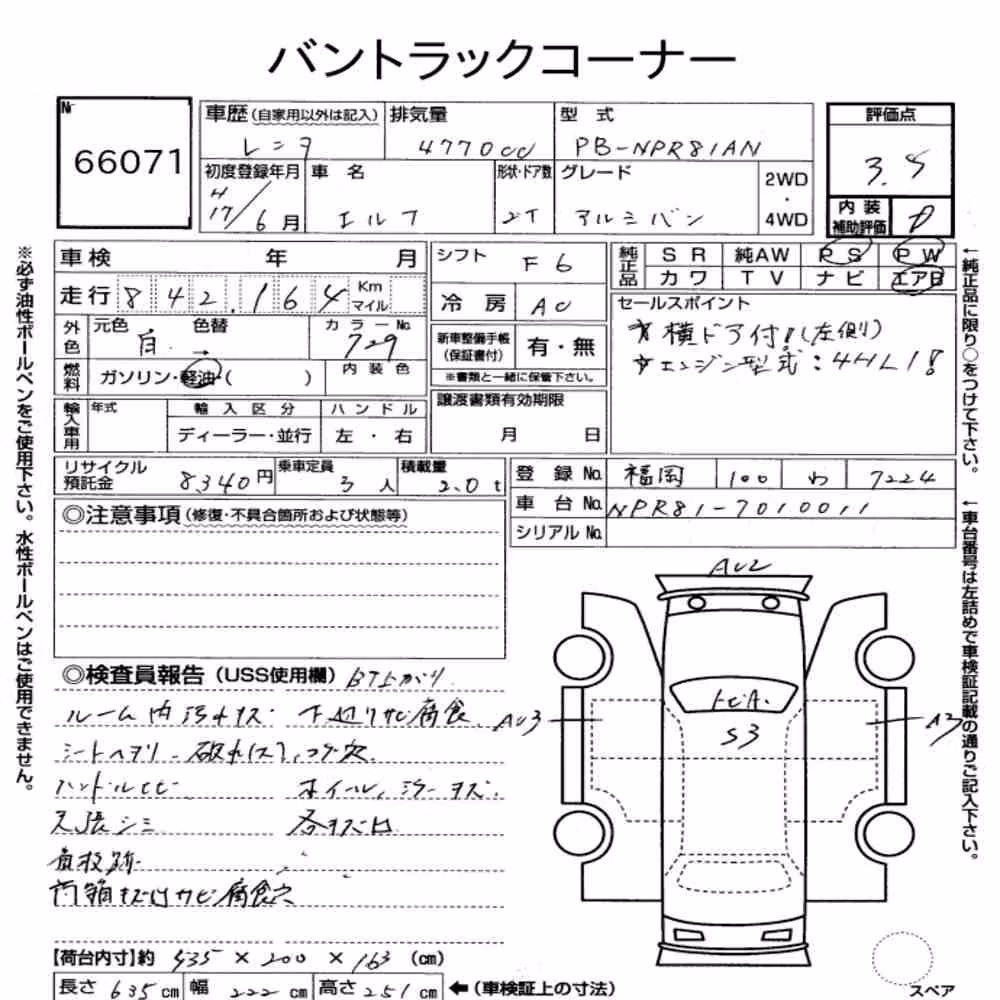 バントラックコーナー
№ 66071
車歴(自家用以外は記入) 排気量 型式 評価点
レンタ 4770cc PB-NPR81AN 3.5
初度登録年月 車名 形状・ドア数 グレード 2WD・4WD 内装補助評価
H17/6月 エルフ 2T アルミバン D
車検 年 月
走行 842,164 Km マイル
外色 元色 色替 カラーNo.
白 → 729
燃料 ガソリン・軽油・( ) 内装色
輸入車用 年式 輸入区分 ハンドル
ディーラー・並行 左・右
シフト F6
冷房 AC
新車整備手帳(保証書付) 有・無
※書類と一緒に保管下さい。
譲渡書類有効期限
月 日
純正品 SR 純AW PS PW
カワ TV ナビ エアB
セールスポイント
横ドア付!(左側)
エンジン型式:4HL1!
リサイクル預託金 8,340円 乗車定員 3人 積載量 2.0t
登録No. 福岡 100 わ 7224
車台No. NPR81-7010011
シリアルNo.
◎注意事項(修復・不具合箇所および状態等)
◎検査員報告(USS使用欄) BT上がり
ルーム内汚れキズ 下廻りサビ腐食
シートヘタリ 破れ(大)、コゲ穴
ハンドルヒビ ホイール、汚 キズ
天張シミ 各キズ凹
直板跡
荷箱キズ凹サビ腐食穴
【荷台内寸】約 435 × 200 × 163 (cm)
長さ 635 cm 幅 222 cm 高さ 251 cm ←(車検証上の寸法)
AU2
トビA.
S3
AU3
A3
スペア
※必ず油性ボールペンをご使用下さい。水性ボールペンはご使用できません。
←純正品に限り○をつけて下さい。
←車台番号は左詰めで車検証記載の通りご記入下さい。